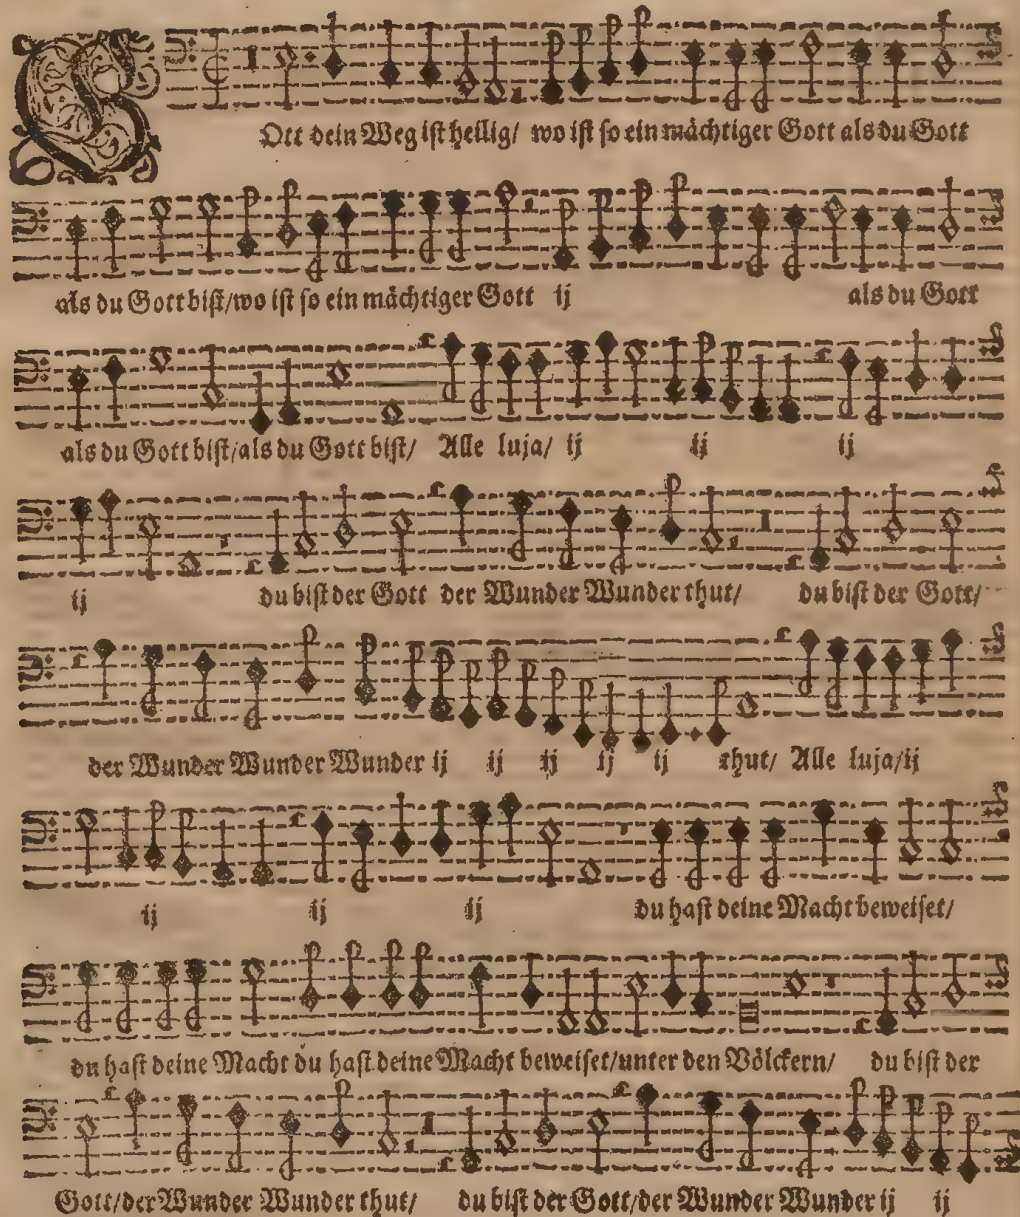 GOtt dein Weg ist heilig/ wo ist so ein mächtiger Gott als du Gott
als du Gott bist/wo ist so ein mächtiger Gott ij als du Gott
als du Gott bist/als du Gott bist/ Alle luja/ ij ij ij
ij du bist der Gott der Wunder Wunder thut/ du bist der Gott/
der Wunder Wunder Wunder ij ij ij ij ij thut/ Alle luja/ij
ij ij ij du hast deine Macht beweiset/
du hast deine Macht du hast deine Macht beweiset/unter den Völckern/ du bist der
Gott/der Wunder Wunder thut/ du bist der Gott/der Wunder Wunder ij ij